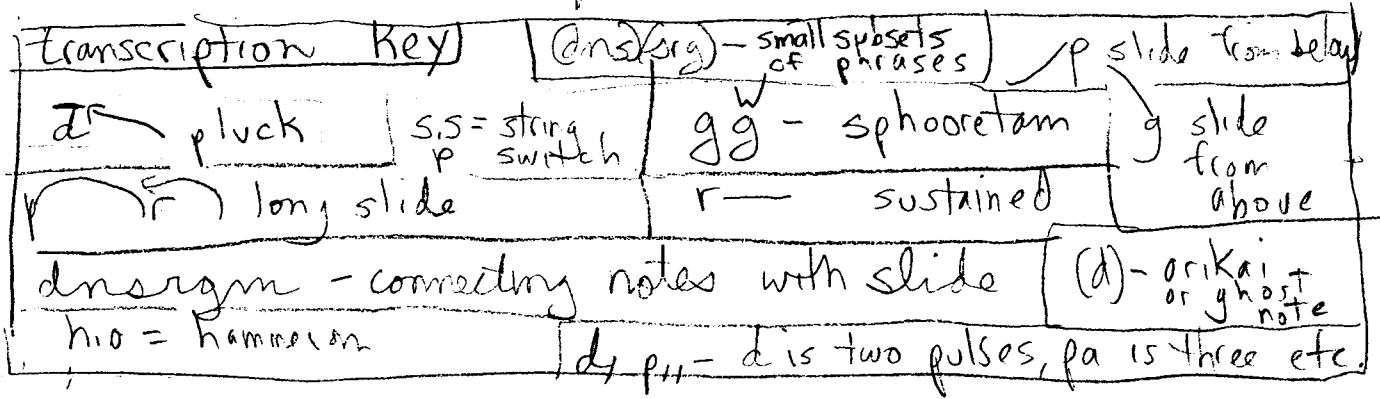 transcription key
(dns)(srg) - small subsets
of phrases
p slide from below
d pluck
s,s = string
p switch
gg - sphooretam
g slide
from
above
p r long slide
r— sustained
dnsrgm - connecting notes with slide
(d) - orikai
or ghost
note
h.o = hammer on
d, p,, - d is two pulses, pa is three etc.